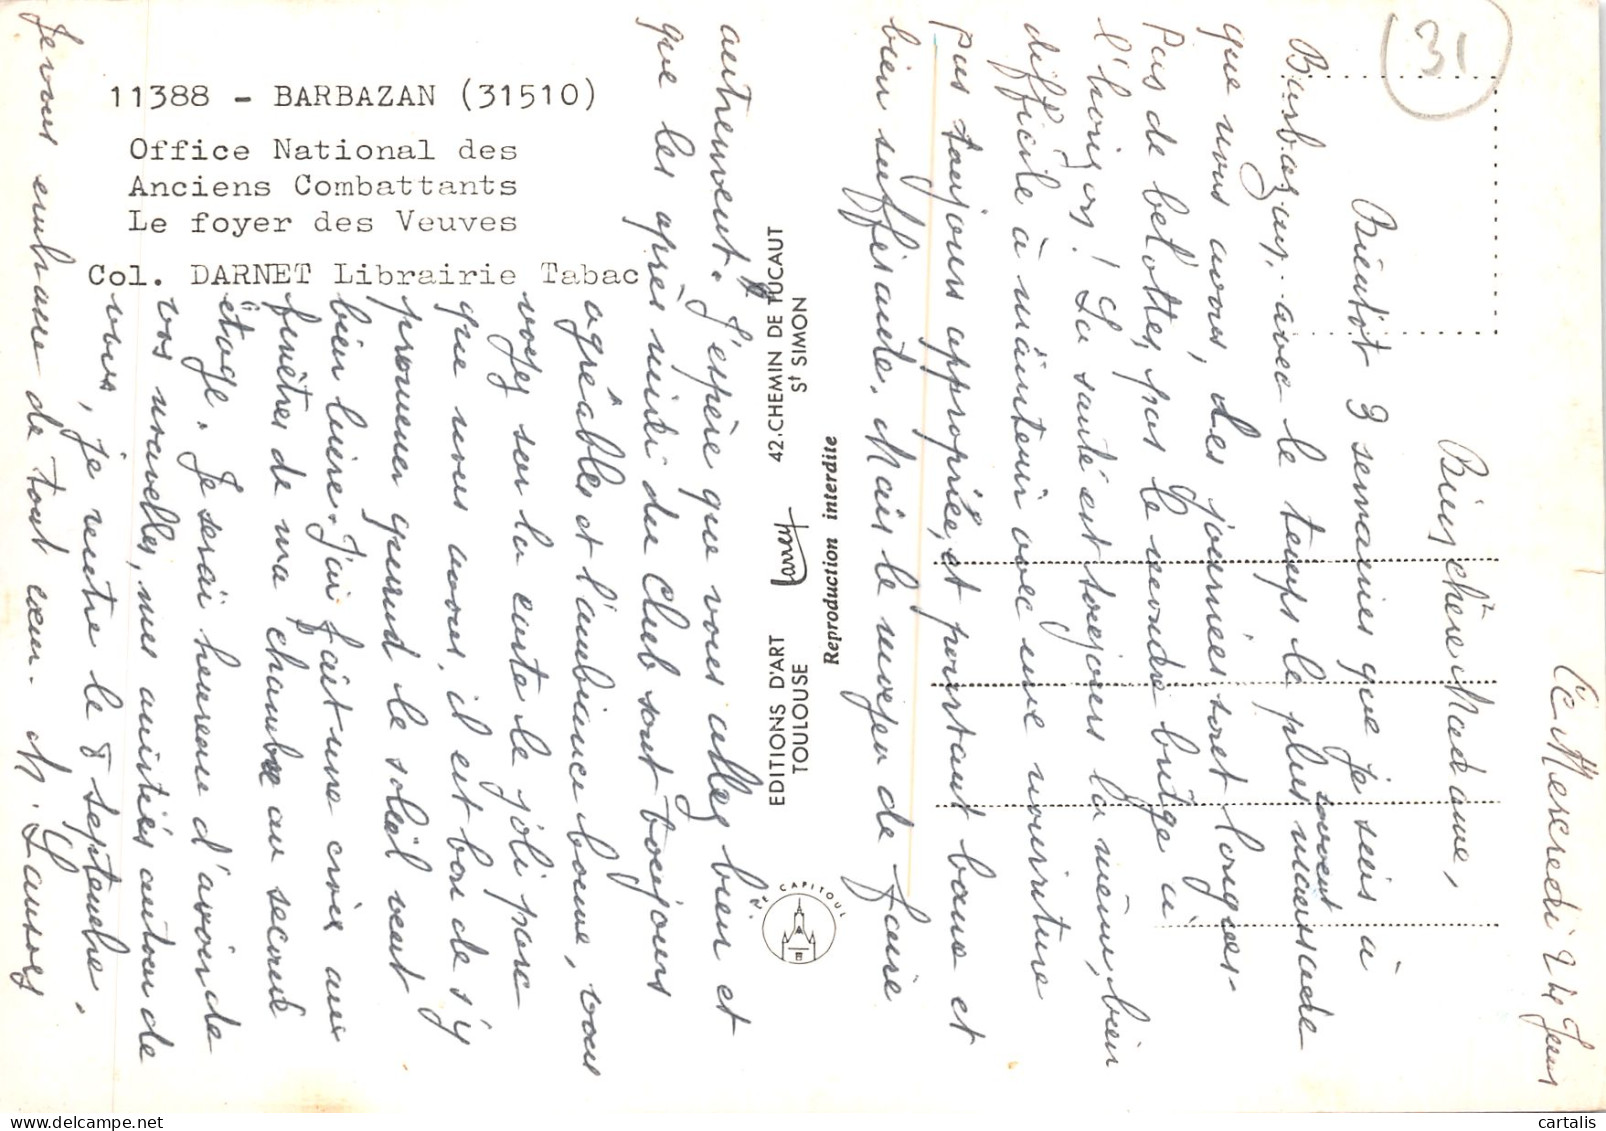 31
11388 - BARBAZAN (31510)
Office National des
Anciens Combattants
Le foyer des Veuves
Col. DARNET Librairie Tabac
EDITIONS D'ART Larrey 42, CHEMIN DE TUCAUT
TOULOUSE St SIMON
Reproduction interdite
LE CAPITOUL
Le Mercredi 24 Juin
Bien chère Madame,
Bientôt 3 semaines que je suis à
Barbazan, avec le temps le plus souvent maussade
que nous avons, les journées sont longues.
Pas de belottes, pas le moindre bridge à
l'horizon! La santé est toujours la même, bien
difficile à maintenir avec une nourriture
pas toujours appropriée, et pourtant bonne et
bien suffisante. Mais le moyen de faire
autrement. J'espère que vous allez bien et
que les après midi du Club sont toujours
agréables et l'ambiance bonne, vous
voyez sur la carte le joli parc
que nous avons, il est bon de s'y
promener quand le soleil veut
bien luire. J'ai fait une croix aux
fenêtres de ma chambre au second
étage. Je serai heureuse d'avoir de
vos nouvelles, mes amitiés autour de
vous, je rentre le 8 septembre.
Je vous embrasse de tout cœur. M.
cartalis
delcampe.net